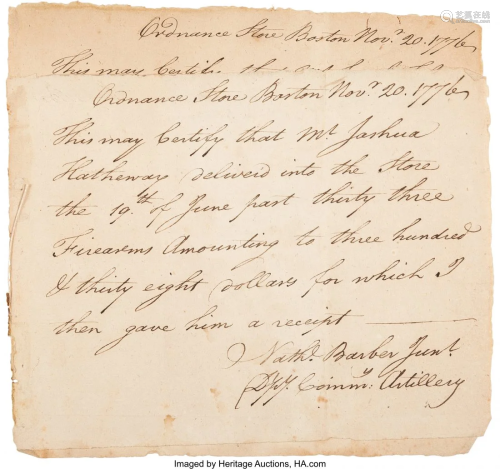 Ordnance Store Boston Novr. 20. 1776
This may Certify
Ordnance Store Boston Novr. 20. 1776
This may Certify that Mr. Jashua
Hatheway deliverd into the Store
the 19th of June past thirty three
Firearms Amounting to three hundred
& thirty eight dollars for which I
then gave him a receipt
Nathl. Barber Junr.
Dpy. Commy: Artillery
Imaged by Heritage Auctions, HA.com